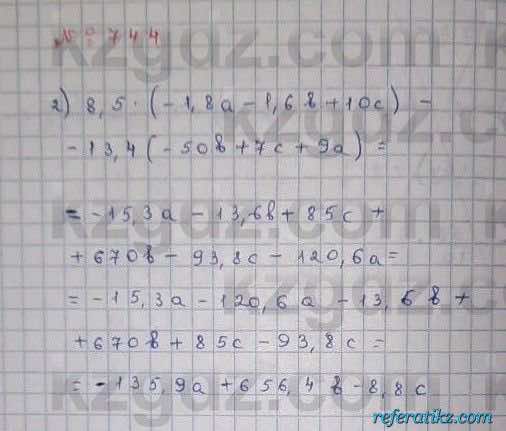 № 744
2) 8,5 · (-1,8а - 1,6в + 10с) -
- 13,4 (-50в + 7с + 9а) =
= -15,3а - 13,6в + 85с +
+ 670в - 93,8с - 120,6а =
= -15,3а - 120,6а - 13,6в +
+ 670в + 85с - 93,8с =
= -135,9а + 656,4в - 8,8с
kzgdz.com
referatikz.com